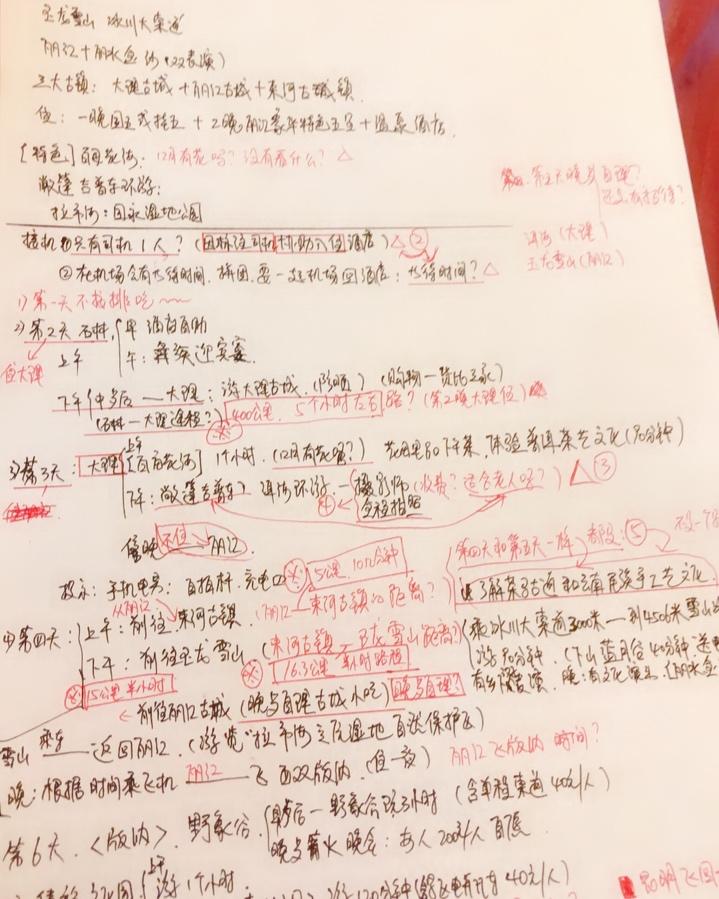 玉龙雪山 冰川大索道
丽江+丽水金沙(双表演)
三大古镇: 大理古城+丽江古城+束河古镇
住: 一晚国五或挂五+2晚丽江豪华特色五星+温泉酒店.
[特色] 百花海. 12月有花吗? 没有看什么? △
敞篷吉普车环游:
拉市海: 国家湿地公园
第五天晚餐自理?
还是有接待?
洱海(大理)
玉龙雪山(丽江)
接机只有司机1人? (司机协助入住酒店) △②
②在机场会有等待时间. 拼团. 要一起机场回酒店: 等待时间? △
1) 第一天不安排吃
2) 第2天 石林. 早 酒店自助
住大理 上午 午: 彝族迎宾宴.
下午 午餐后——大理: 游大理古城. (购物一货比三家)
(石林—大理远程?) 400公里. 5个小时左右 路? (第2晚大理住)
3) 第3天: 大理 上午 [百花海] 1个小时. (12月有花吗?) 体验普洱茶艺文化(90分钟)
下午: 敞篷吉普车 洱海环游. 摄影师 全程拍照 (收费? 适合老人吗?) △③
傍晚 不住 → 丽江
提示: 手机电筒: 自拍杆. 充电
5公里. 10几分钟
(丽江—束河古镇的距离?)
第四天和第五天一样 ⑤
了解茶马古道和云南民族手工艺文化
4) 第四天: 上午: 从丽江 前往 束河古镇
下午: 前往玉龙雪山 (束河古镇—玉龙雪山距离?)
16.3公里 半小时路程
乘冰川大索道3000米—到4506米雪山
游90分钟. (下山蓝月谷40分钟. 送
15公里 半小时
前往丽江古城 (晚餐自理 古城小吃) 晚餐自理?
雪山 乘车——返回丽江. (游览"拉市海"高原湿地自然保护区)
晚: 根据时间乘飞机 丽江——飞 西双版纳. (住一夜) 丽江飞版纳 时间?
第6天. <版纳>. 野象谷. 早餐后—野象谷玩3小时 (含单程索道40元/人)
晚餐篝火晚会: 每人200元/人 自愿
上午 游1个小时.
游120分钟 电瓶车40元/人)
昆明飞回